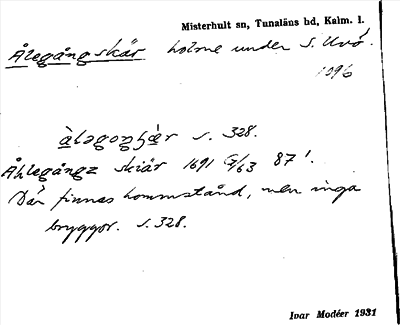 Misterhult sn, Tunaläns hd, Kalm. l.
Ålegångskär holme under S. Uvö.
1096
àləgoŋʃæ̀r s. 328.
Åhlegångz skiär 1691 G/63 87'.
Där finnas kommstånd, men inga
bryggor. s. 328.
Ivar Modéer 1931